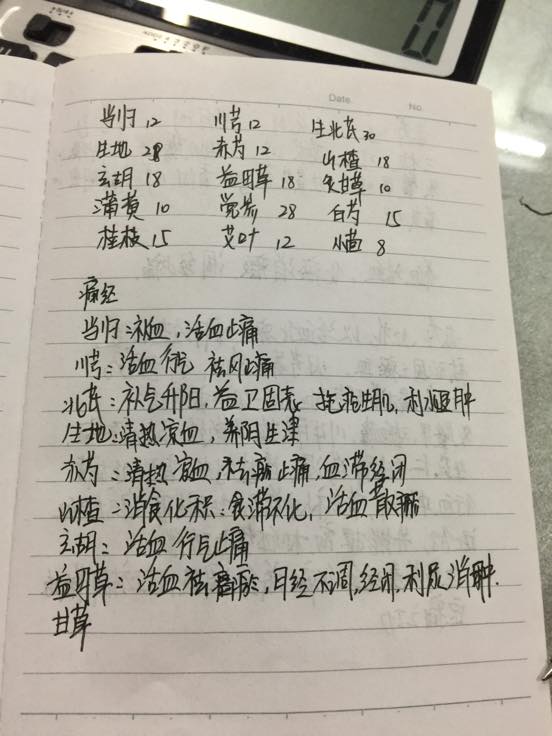 Date. No.
当归 12 川芎 12 生北芪 30
生地 28 赤芍 12 山楂 18
玄胡 18 益母草 18 炙甘草 10
蒲黄 10 党参 28 白芍 15
桂枝 15 艾叶 12 小茴 8
痛经
当归:补血,活血止痛
川芎:活血行气 祛风止痛
北芪:补气升阳,益卫固表 托疮生肌,利水消肿
生地:清热凉血,养阴生津
赤芍:清热凉血,祛瘀止痛,血滞经闭
山楂:消食化积:食滞不化,活血散瘀
玄胡:活血行气止痛
益母草:活血祛瘀,月经不调,经闭,利尿消肿.
甘草